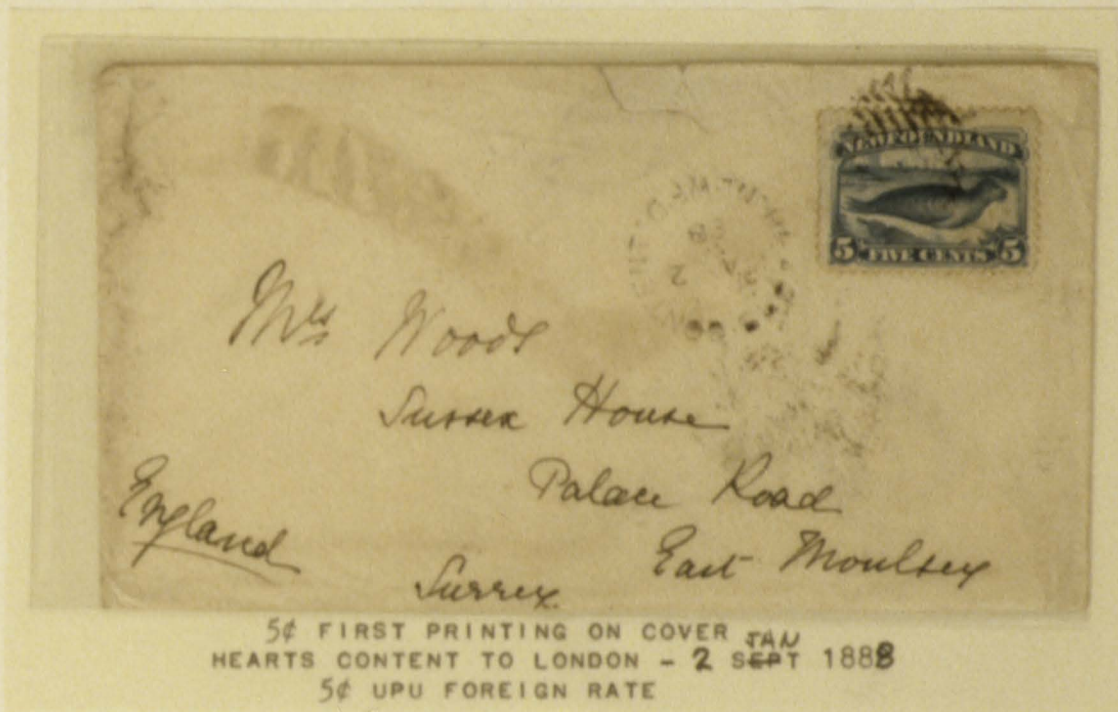 NEWFOUNDLAND
5 FIVE CENTS 5
Mrs Woods
Sussex House
Palace Road
East Moulsey
Surrey
England
5¢ FIRST PRINTING ON COVER
HEARTS CONTENT TO LONDON - 2 SEPT JAN 1888
5¢ UPU FOREIGN RATE